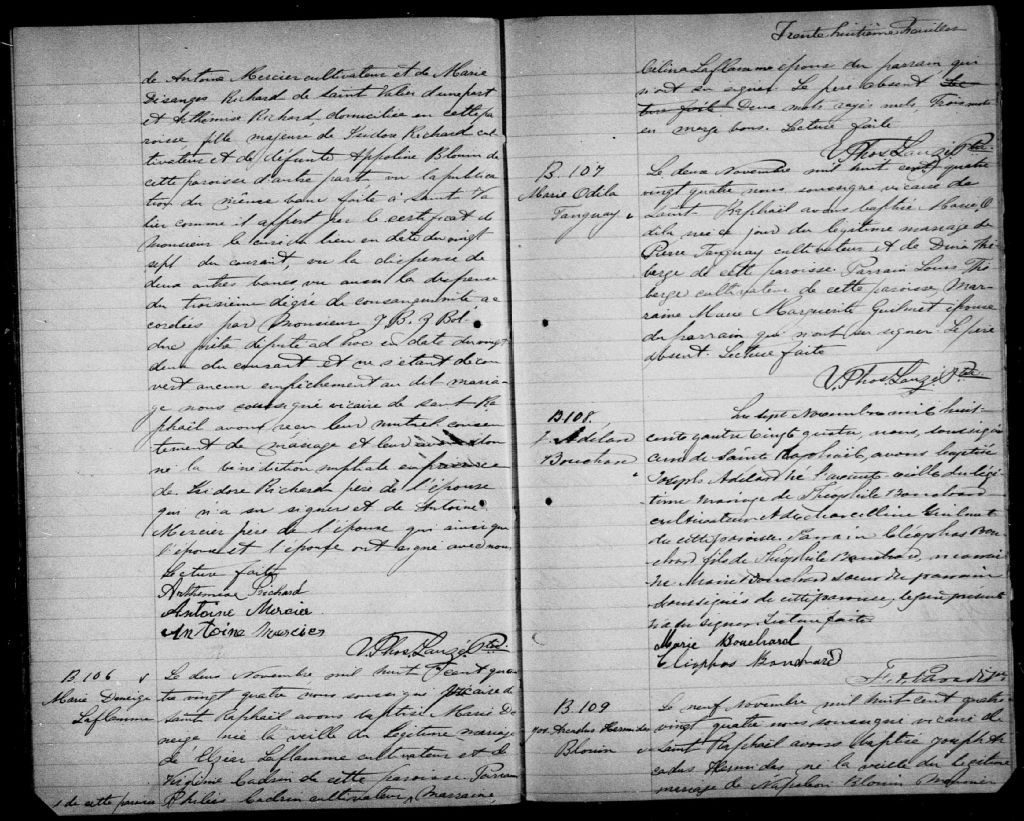 de Antoine Mercier cultivateur et de Marie
Desanges Richard de Saint Valier d'une part
et Arthémise Richard domiciliée en cette pa
roisse fille majeure de Isidore Richard cul
tivateur et de défunte Appoline Blouin de
cette paroisse d'autre part vu la publica
tion du même banc faite à Saint Va
lier comme il appert par le certificat de
Monsieur le curé du lieu en date du vingt
sept du courant, vu la dispense de
deux autres bancs vu aussi la dispense
du troisième dégré de consanguinité ac
cordées par Monsieur J B Z Bol
duc député ad hoc en date du vingt
deux du courant et ne s'étant décou
vert aucun empêchement au dit maria
ge nous soussigné vicaire de Saint Ra
phaël avons reçu leur mutuel consen
tement de mariage et leur avons don
né la bénédiction nuptiale en présence
de Isidore Richard père de l'épouse
qui n'a su signer et de Antoine
Mercier père de l'époux qui ainsi que
l'époux et l'épouse ont signé avec nous
Lecture faite
Arthemise Richard
Antoine Mercier
Antoine Mercier
V. Phos. Lauzé Ptre.
B. 106
Marie Deneige
Laflamme
Le deux Novembre mil huit cent quatre
vingt quatre nous soussigné vicaire de
Saint Raphaël avons baptisé Marie De
neige née la veille du légitime mariage
de Elzéar Laflamme cultivateur et de
Cadrin de cette paroisse. Parrain
Philias Cadrin cultivateur, Marraine,
de cette paroisse
Trente huitième Feuillet
Celina Laflamme épouse du parrain qui
n'ont su signer. Le père absent Lec
ture faite. Deux mots rayés nuls, Trois mots
en marge bons. Lecture faite
V. Phos. Lauzé Ptre.
B. 107
Marie Odila
Tanguay
Le deux Novembre mil huit cent quatre
vingt quatre nous soussigné vicaire de
Saint Raphaël avons baptisé Marie O
dila née ce jour du légitime mariage de
Pierre Tanguay cultivateur et de Dina Thi
berge de cette paroisse. Parrain Louis Thi
berge cultivateur de cette paroisse, Mar
raine Marie Marguerite Guilmet épouse
du parrain qui n'ont su signer. Le père
absent. Lecture faite
V. Phos. Lauzé Ptre.
B 108.
J. Adélard
Bouchard
Le sept Novembre mil huit
cent quatre vingt quatre, nous, soussigné
curé de Saint Raphaël, avons baptisé
Joseph Adélard né l'avant veille du légi
time mariage de Théophile Bouchard
cultivateur & de Marcelline Guilmet
de cette paroisse. Parrain Cléophas Bou
chard fils de Théophile Bouchard, marrai
ne Marie Bouchard soeur du parrain
soussignés de cette paroisse, le père présent
n'a su signer. Lecture faite
Marie Bouchard
Cléophas Bouchard
B 109
Jos. Arcadus Hermidas
Blouin
Le neuf novembre mil huit cent quatre
vingt quatre nous soussigné vicaire de
Saint Raphaël avons baptisé Joseph Ar
cadus Hermidas, né la veille du légitime
mariage de Napoléon Blouin